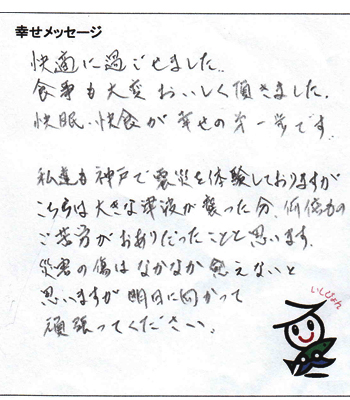 幸せメッセージ
快適に過ごせました。
食事も大変おいしく頂きました。
快眠・快食が幸せの第一歩です。
私達も神戸で震災を体験しておりますが
こちらは大きな津波が襲った分、何倍もの
ご苦労がおありだったことと思います。
災害の傷はなかなか癒えないと
思いますが明日に向かって
頑張ってください。
いしぴょん